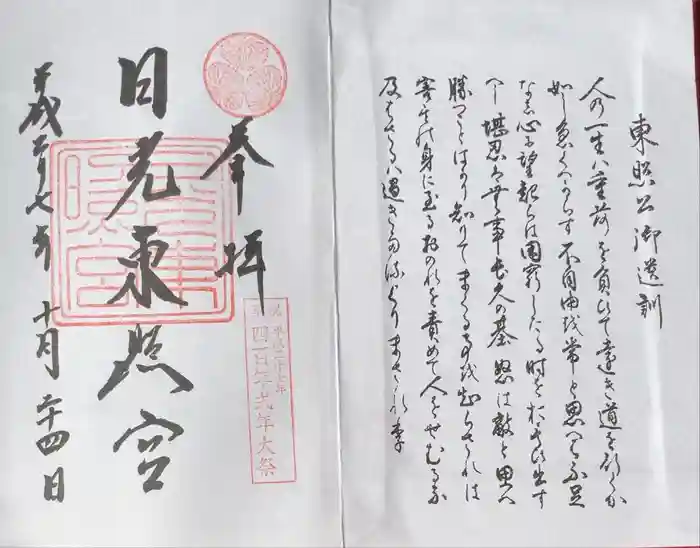 東照公御遺訓
人の一生ハ重荷を負ひて遠き道を行くか
如し急くへからす不自由を常と思へハ不足
なし心に望起らは困窮したる時をおもひ出す
へし堪忍は無事長久の基怒は敵と思へ
勝つことはかり知りてまくる事を知らされは
害其身に至るおのれを責めて人をせむるな
及はさるハ過きたるよりまされり
奉拝
日光東照宮
平成二十七年十月二十四日
平成二十七年
四百年式年大祭